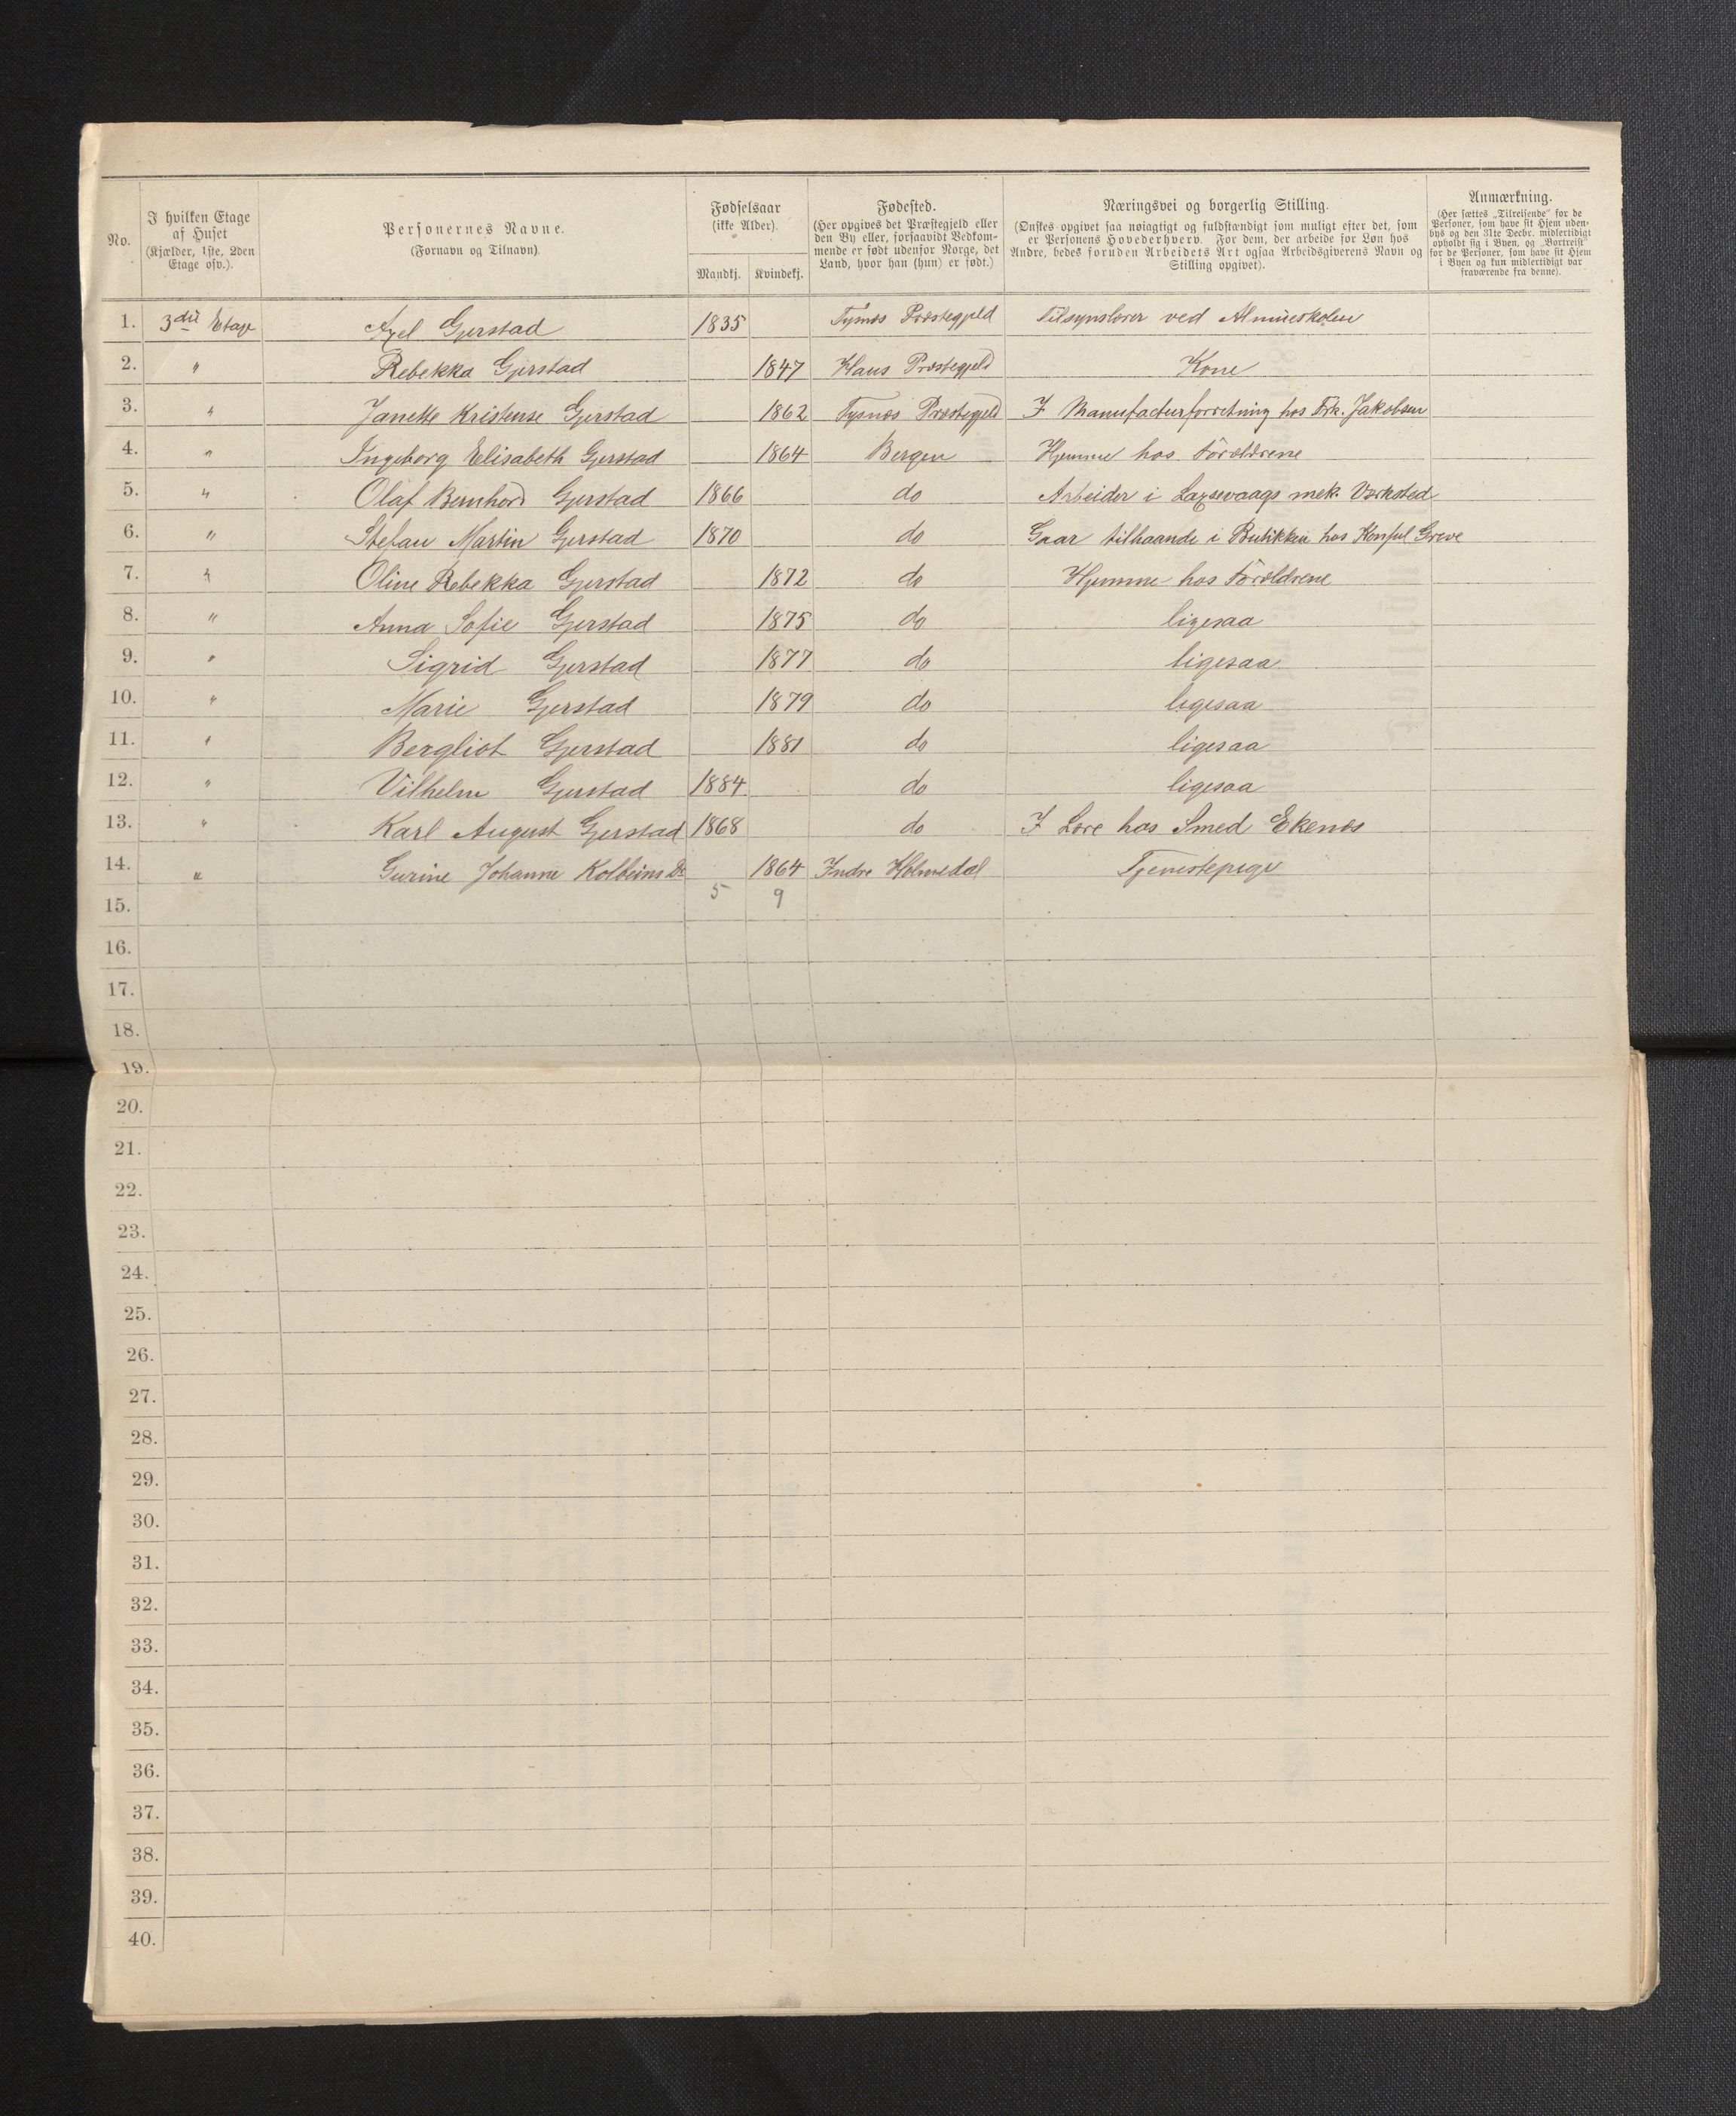 No.
I hvilken Etage
af Huset
(Kjælder, 1ste, 2den
Etage osv.).
Personernes Navne.
(Fornavn og Tilnavn)
Fødselsaar
(ikke Alder).
Mandkj. Kvindekj.
Fødested.
(Her opgives det Præstegjeld eller
den By eller, forsaavidt Vedkom-
mende er født udenfor Norge, det
Land, hvor han (hun) er født.)
Næringsvei og borgerlig Stilling.
(Ønskes opgivet saa nøiagtigt og fuldstændigt som muligt efter det, som
er Personens Hovederhverv. For dem, der arbeide for Løn hos
Andre, bedes foruden Arbeidets Art ogsaa Arbeidsgiverens Navn og
Stilling opgivet).
Anmærkning.
(Her sættes „Tilreisende" for de
Personer, som have sit Hjem uden-
bys og den 31te Decbr. midlertidigt
opholdt sig i Byen, og „Bortreist"
for de Personer, som have sit Hjem
i Byen og kun midlertidigt var
fraværende fra denne).
1. 3die Etage Axel Gjerstad 1835 Tysnæs Præstegjeld Tilsynslærer ved Almueskolen
2. " Rebekka Gjerstad 1847 Haus Præstegjeld Kone
3. " Janette Kristense Gjerstad 1862 Tysnæs Præstegjeld I Manufacturforretning hos Frk. Jakobsen
4. " Ingeborg Elisabeth Gjerstad 1864 Bergen Hjemme hos Forældrene
5. " Olaf Bernhard Gjerstad 1866 do Arbeider i Laxevaags mek. Værksted
6. " Stefan Martin Gjerstad 1870 do Gaar tilhaande i Butikken hos Konsul Greve
7. " Oline Rebekka Gjerstad 1872 do Hjemme hos Forældrene
8. " Anna Sofie Gjerstad 1875 do ligesaa
9. " Sigrid Gjerstad 1877 do ligesaa
10. " Marie Gjerstad 1879 do ligesaa
11. " Bergliot Gjerstad 1881 do ligesaa
12. " Vilhelm Gjerstad 1884 do ligesaa
13. " Karl August Gjerstad 1868 do I Lære hos Smed Ekenæs
14. " Gurine Johanne Kolbeins Dr 1864 Indre Holmedal Tjenestepige
15. 5 9
16.
17.
18.
19.
20.
21.
22.
23.
24.
25.
26.
27.
28.
29.
30.
31.
32.
33.
34.
35.
36.
37.
38.
39.
40.